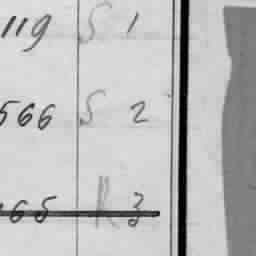 119 S 1
566 S 2
65 R 3